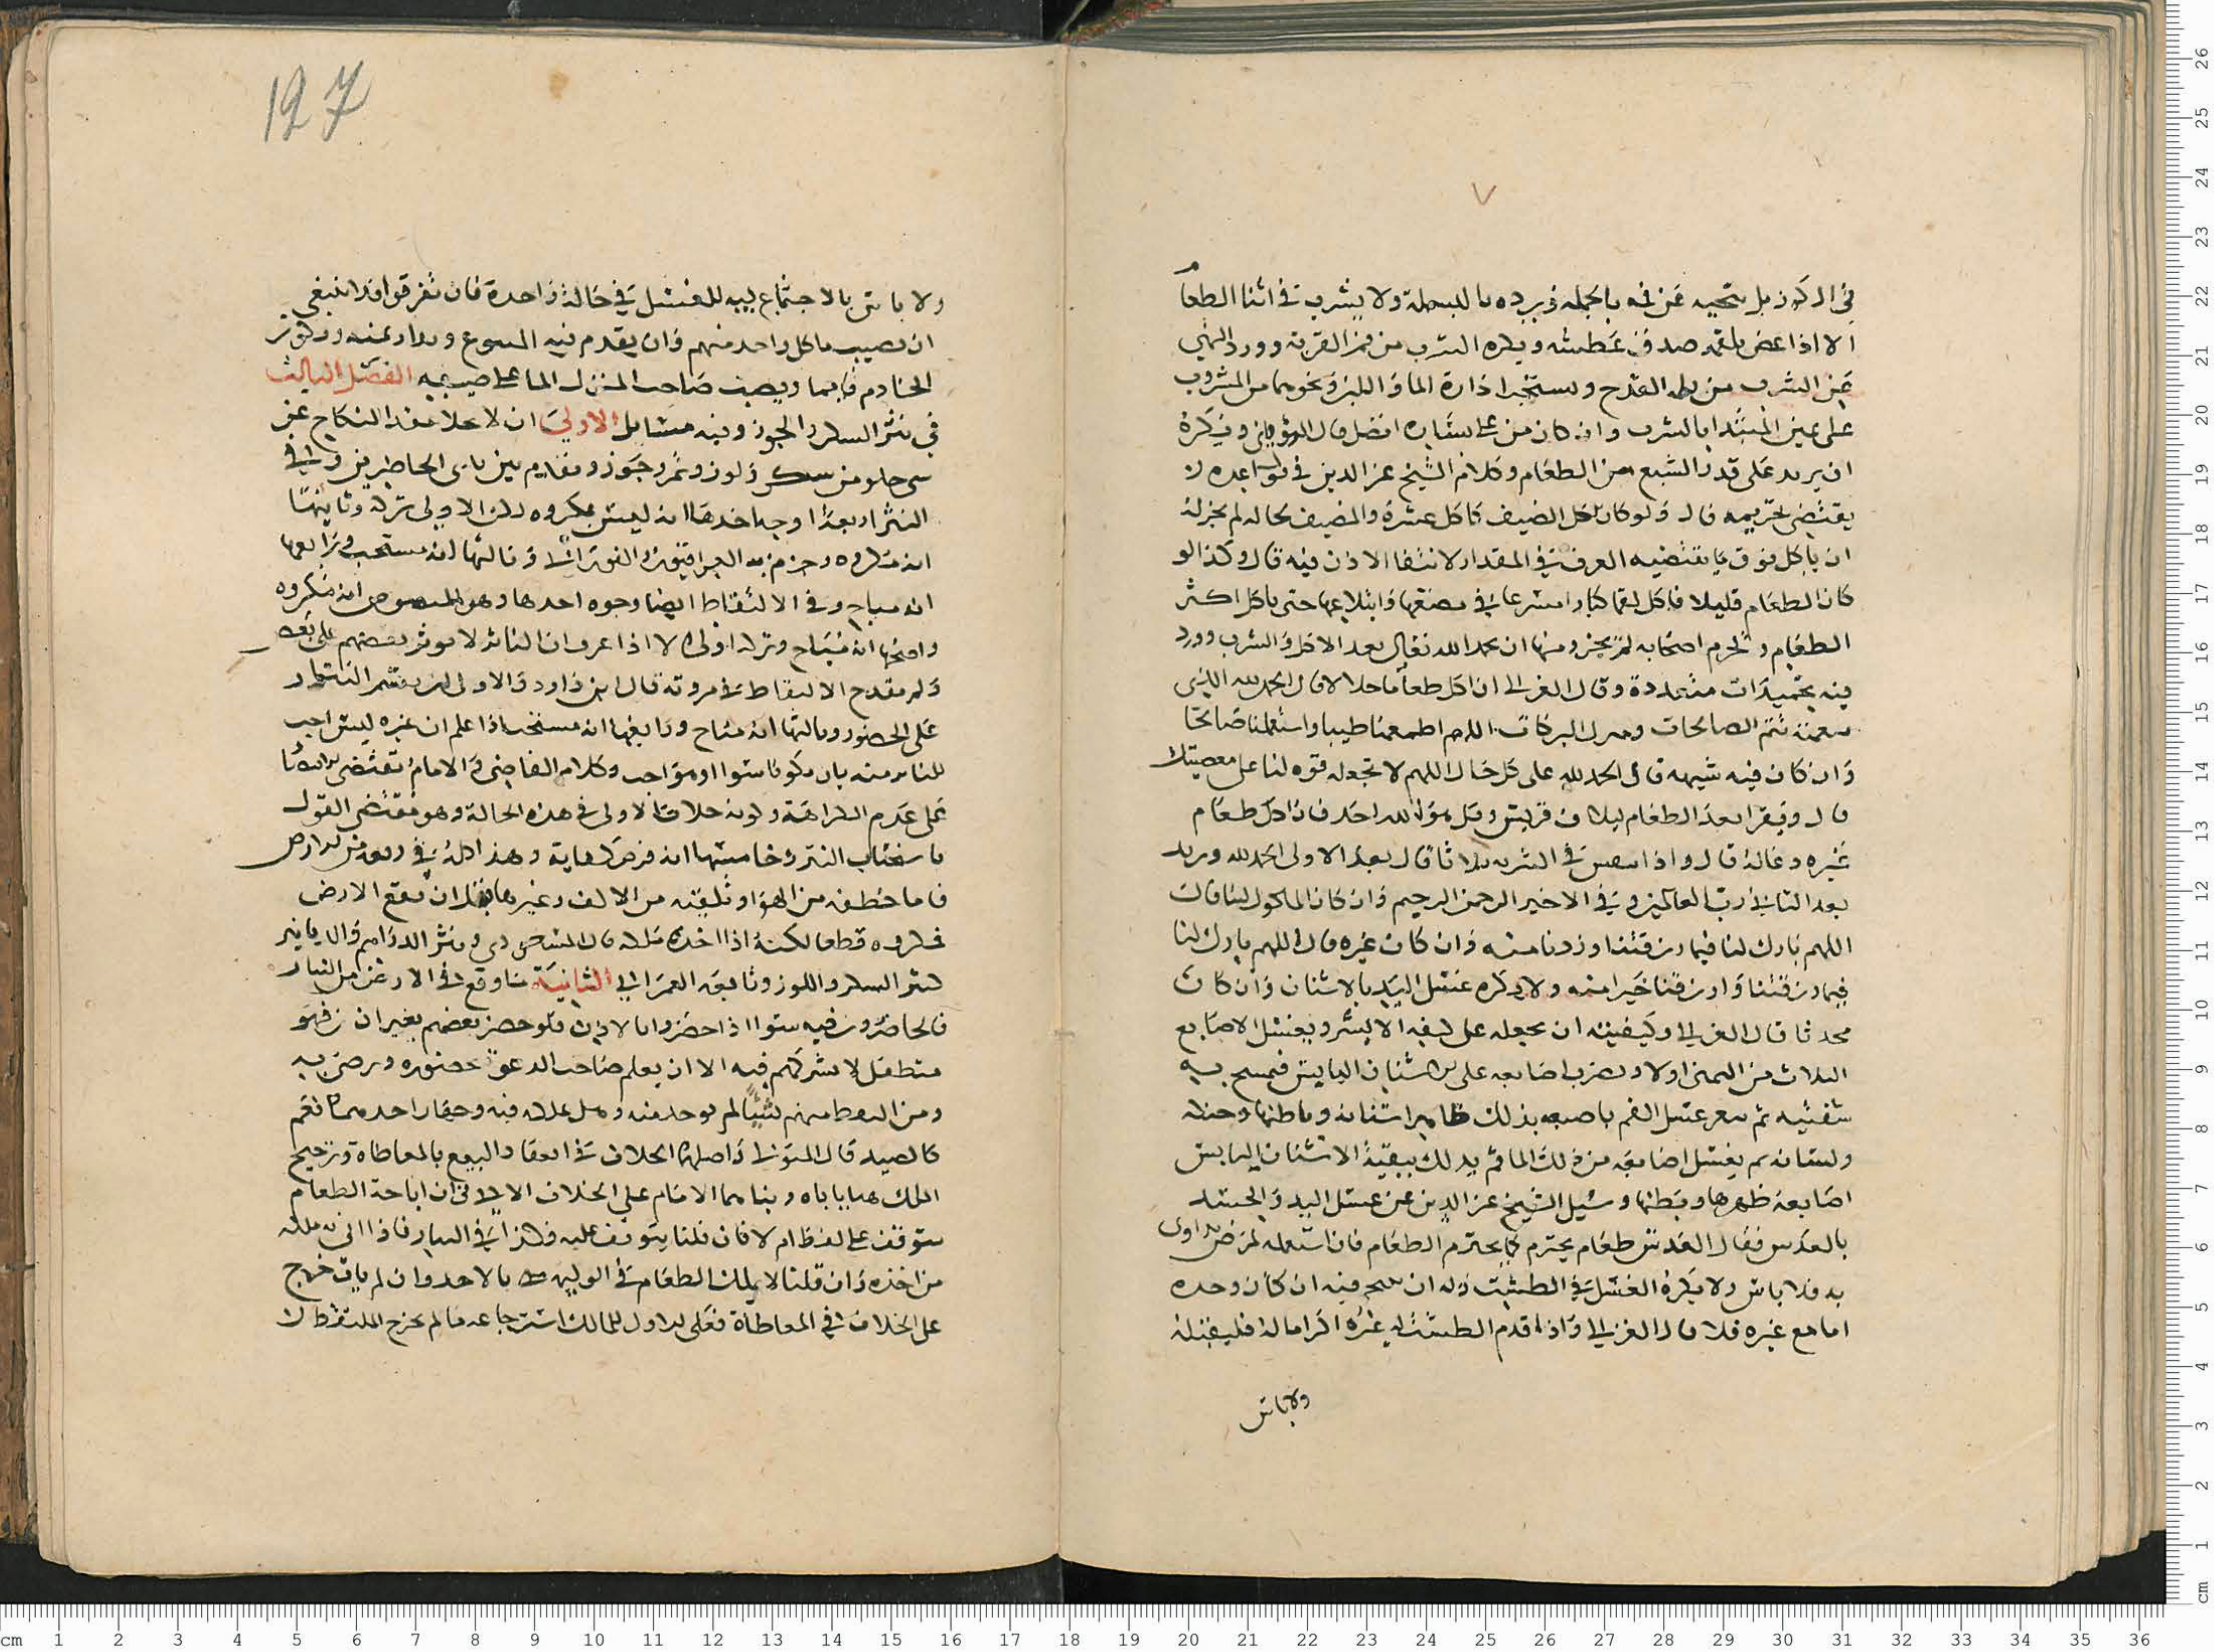 في الكوز بل ينحيه عن فمه بالحمد ويرده بالبسملة ولا يشرب في اثنا الطعام
الا اذا غص بلقمة صدق عطشه ويكره الشرب من فم القربة وورد النهي
عن الشرب من القدح ويستحب ادارة الما واللبن ونحوهما من المشروب
على يمين المبتدا بالشرب وان كان من على يساره افضل قال الروياني ويكره
ان يزيد على قدر الشبع من الطعام وكلام الشيخ عز الدين في قواعده
يقتضي تحريمه قال ولو كان اكل الضيف كاكل عشرة والمضيف بحاله لم يجز له
ان ياكل فوق ما يقتضيه العرف في المقدار لانتفا الاذن فيه قال وكذا لو
كان الطعام قليلا فاكل لقما كبارا مسرعا في مضغها وابتلاعها حتى ياكل اكثر
الطعام ويحرم اصحابه لم يجز ومنها ان يحمد الله تعالى بعد الاكل والشرب وورد
فيه تحميدات متعددة وقال الغزالي ان اكل طعاما حلالا قال الحمد لله الذي
بنعمته تتم الصالحات وتنزل البركات اللهم اطعمنا طيبا واستعملنا صالحا
وان كان فيه شبهه قال الحمد لله على كل حال اللهم لا تجعله قوه لنا على معصيتك
قال ويقرا بعد الطعام ليلاف قريش وقل هو الله احد فان اكل طعام
غيره دعا له قال واذا تنفس في الشربه ثلاثا قال بعد الاولى الحمد لله ويزيد
بعد الثاني رب العالمين وفي الاخير الرحمن الرحيم وان كان الماكول لبنا قال
اللهم بارك لنا فيما رزقتنا وزدنا منه وان كان غيره قال اللهم بارك لنا
فيما رزقتنا وارزقنا خيرا منه ولا يكره غسل اليد بالاشنان وان كان
محدثا قال الغزالي وكيفيته ان يجعله على كفه الايسر ويغسل الاصابع
الثلاث من اليمنى اولا ويضرب اصابعه على الاشنان اليابس فيمسح به
شفتيه ثم ينعم غسل الفم باصبعه بذلك ظاهر اسنانه وباطنها وحنكه
ولسانه ثم يغسل اصابعه من ذلك الما ثم يدلك ببقية الاشنان اليابس
اصابعه ظهرها وبطنها وسيل الشيخ عز الدين عن غسل اليد والجسد
بالعدس فقال العدس طعام يحترم كما يحترم الطعام فان استعمله لمرض يداوى
به فلا باس ولا يكره الغسل في الطست وله ان يتنخم فيه ان كان وحده
اما مع غيره فلا قال الغزالي واذا قدم الطست اليه غيره اكراما له فليقبله
ولا باس
127
ولا باس بالاجتماع للغسل في حالة واحدة فان تفرقوا فينبغي
ان يصب ماكل واحد منهم وان يقدم فيه المتبوع ويدار يمنه ويكون
الخادم قايما ويصب صاحب المنزل الما على ضيفه الفصل الثالث
في نثر السكر والجوز وفيه مسايل الاولى ان الاملاك عقد النكاح عن
شي حلو من سكر ولوز وتمر وجوز ويقدم بين يدي الحاضرين وفي
النثر اربعة اوجه احدها انه ليس بمكروه لكن الاولى تركه وثانيها
انه مكروه وجزم به العراقيون والفوراني وثالثها انه مستحب ورابعها
انه مباح وفي الالتقاط ايضا وجوه احدها وهو المنصوص انه مكروه
واصحها انه مباح وتركه اولى الا اذا عرف ان الناثر لا يوثر بعضهم على بعض
ولم يقدح الالتقاط في مروته قال ابن داود والاولى ان يقسم النثار
على الحضور وثالثها انه مباح ورابعها انه مستحب اذا علم ان غيره ليس احب
للناثر منه بان يكونا سوا او هو احب وكلام القاضي والامام يقتضي
على عدم الكراهة وكونه خلاف الاولى في هذه الحالة وهو مقتضى القول
باستحباب النثر وخامسها انه فرض كفاية وهذا كله في اخذه من الارض
فاما خطفه من الهوا وتلقيه من الاكف وغيرها قبل ان يقع الارض
فمكروه قطعا لكنه اذا اخذه ملكه قال السرخسي ونثر الدراهم والدنانير
كنثر السكر واللوز وتابعه العمراني الثانية ما وقع في الارض من النثار
فالحاضرون فيه سوا اذا حضروا بالاذن فلو حضر بعضهم بغير اذن فهو
متطفل لا يشركهم فيه الا ان يعلم صاحب الدعوة حضوره ورضي به
ومن التقط منهم شيئا لم يوخذ منه وهل يملكه فيه وجهان احدهما نعم
كالصيد قال المتولي واصلهما الخلاف في انعقاد البيع بالمعاطاة وترجيح
الملك هنا ياباه وبناهما الامام على الخلاف الاتي في ان اباحة الطعام
يتوقف على لفظ ام لا فان قلنا يتوقف عليه فكذا في النثار فاذا اتى به ملكه
من اخذه وان قلنا لا يملك الطعام في الوليمه بالاخذ وان لم يات خرج
على الخلاف في المعاطاة فعلى الاول للمالك استرجاعه ما لم يخرج الملتقط